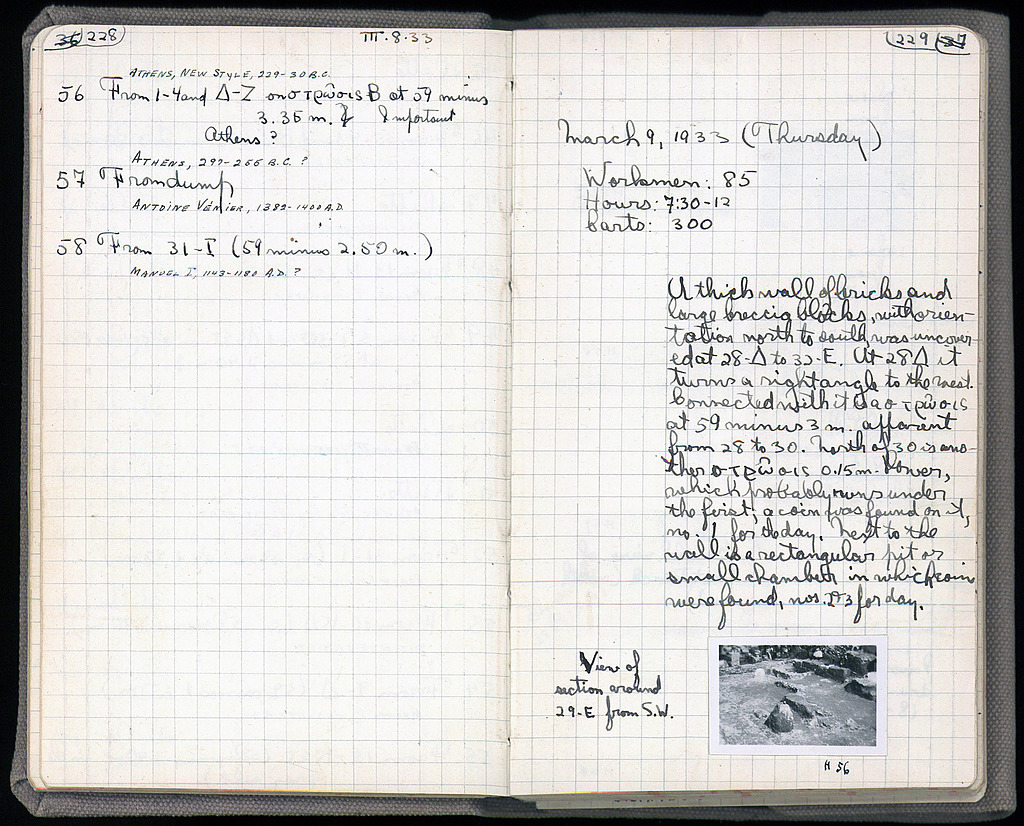 36 228
III.8.33
ATHENS, NEW STYLE, 229-30 B.C.
56 From 1-4 and Δ-Z on στρῶσις B at 59 minus
3.35 m. Important
Athens ?
ATHENS, 297-255 B.C. ?
57 From dump
ANTOINE VENIER, 1382-1400 A.D.
58 From 31-I (59 minus 2.50 m.)
MANUEL I, 1143-1180 A.D. ?
229 37
March 9, 1933 (Thursday)
Workmen: 85
Hours: 7:30-12
Carts: 300
A thick wall of bricks and
large breccia blocks, with orien-
tation north to south, was uncover-
ed at 28-Δ to 32-E. At 28Δ it
turns a right angle to the west.
Connected with it is a στρῶσις
at 59 minus 3 m. apparent
from 28 to 30. North of 30 is ano-
ther στρῶσις 0.15 m. lower,
which probably runs under
the first; a coin was found on it,
no. 1 for today. Next to the
wall is a rectangular pit or
small chamber in which coins
were found, nos. 2-3 for day.
View of
section around
29-E from S.W.
H 56